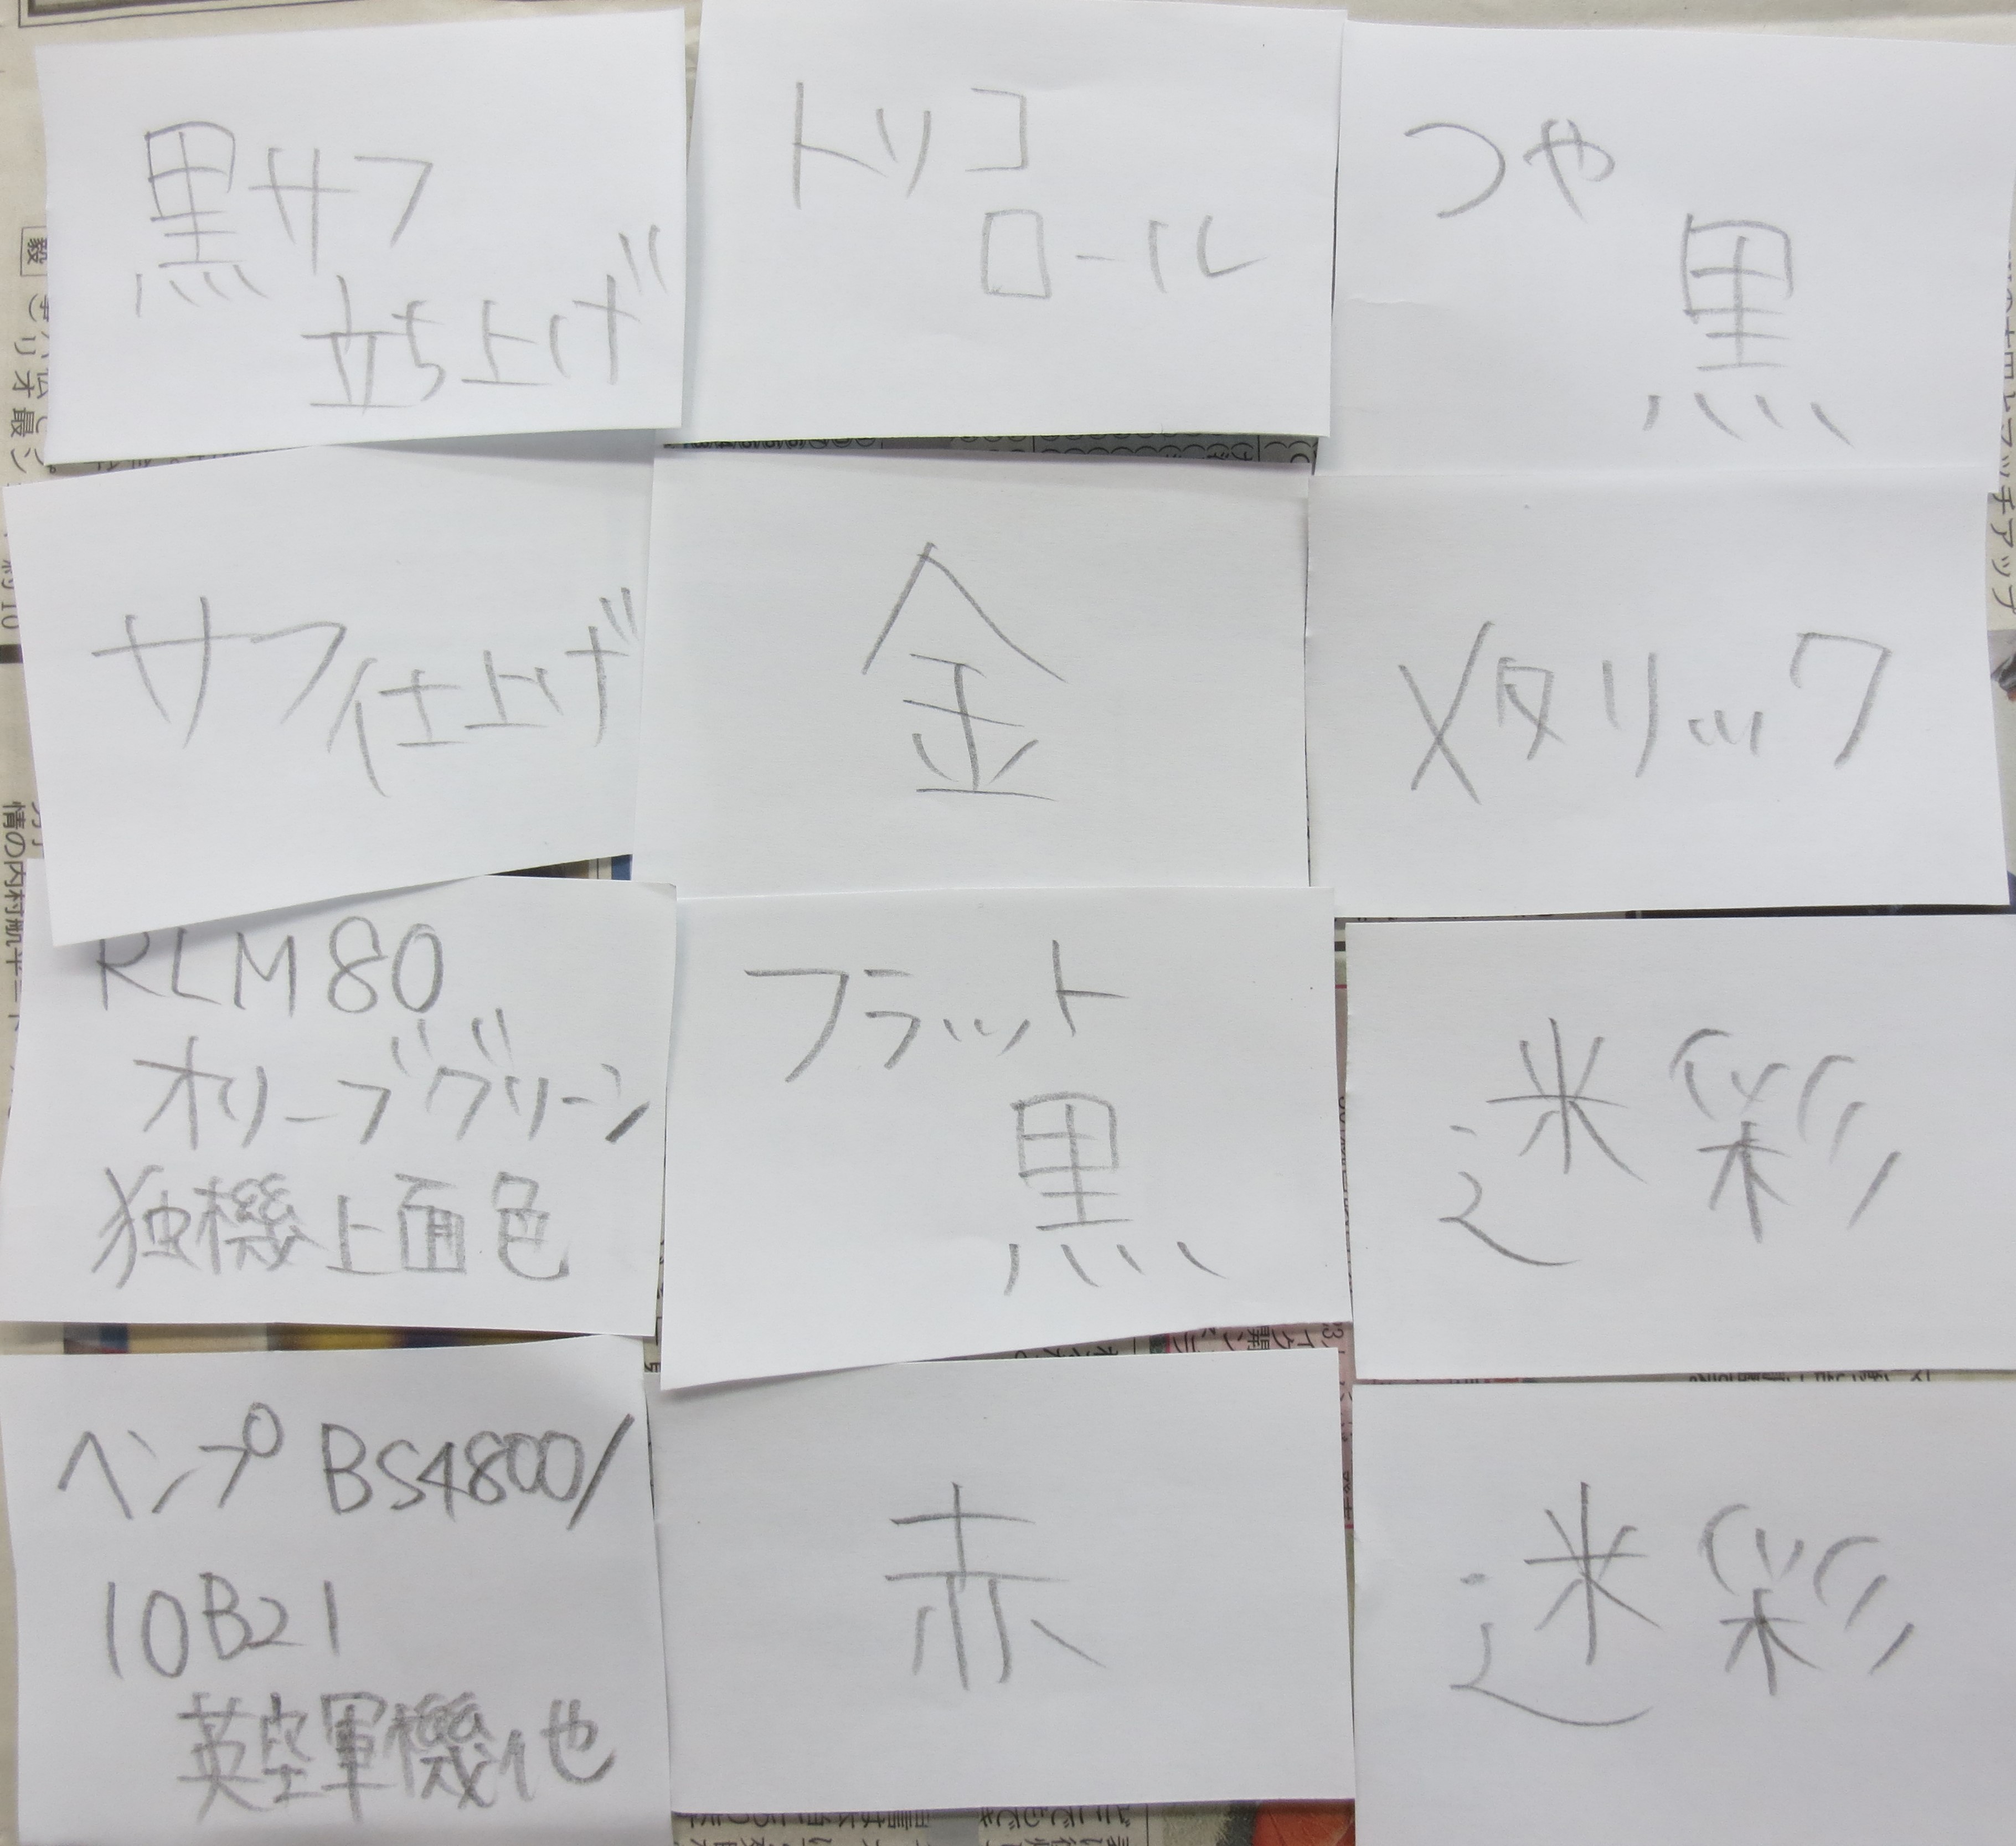 黒サフ
立ち上げ
トリコ
ロール
つや
黒
サフ仕上げ
金
メタリック
RLM80
オリーブグリーン
独機上面色
フラット
黒
迷彩
ヘンプ BS4800/
10B21
英空軍機他
赤
迷彩